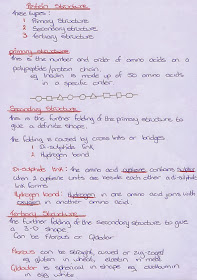 Protein Structure
Three types:
1 Primary Structure
2 Secondary Structure
3 Tertiary Structure
primary structure
this is the number and order of amino acids on a
polypeptide/protein chain.
eg Insulin is made up of 50 amino acids
in a specific order
Secondary Structure
this is the further folding of the primary structure to
give a definite shape.
the folding is caused by cross links or bridges
1 Di-sulphide link
2 Hydrogen bond
Di-sulphide link: the amino acid cysteine contains sulphur
when 2 cysteine units are beside each other a di-sulphide
link forms
Hydrogen bond: Hydrogen in one amino acid joins with
oxygen in another amino acid.
Tertiary Structure
the further folding of the secondary structure to give
a 3-D shape.
Can be fibrous or Globular
Fibrous can be straight, curved or
eg gluten in wheat, elastin in meat
Globular is spherical in shape eg
in egg white